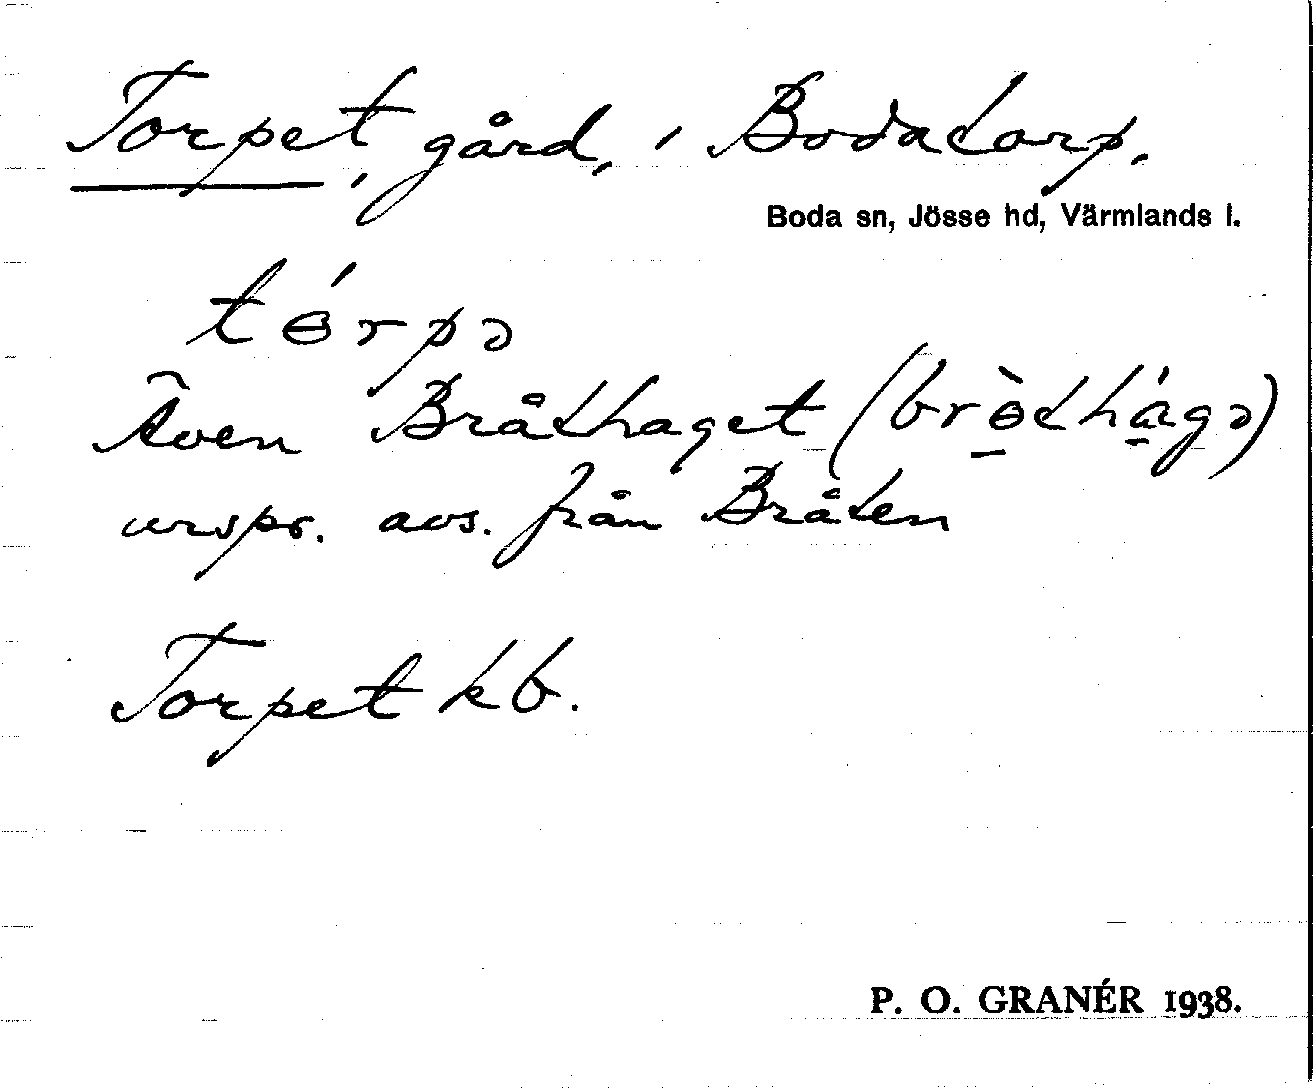 Torpet, gård, i Bodatorp.
Boda sn, Jösse hd, Värmlands l.
tɵ́rpə
Även Bråthaget (brɵ̱̀thá̱gə)
urspr. avs. från Bråten
Torpet kb.
P. O. GRANÉR 1938.